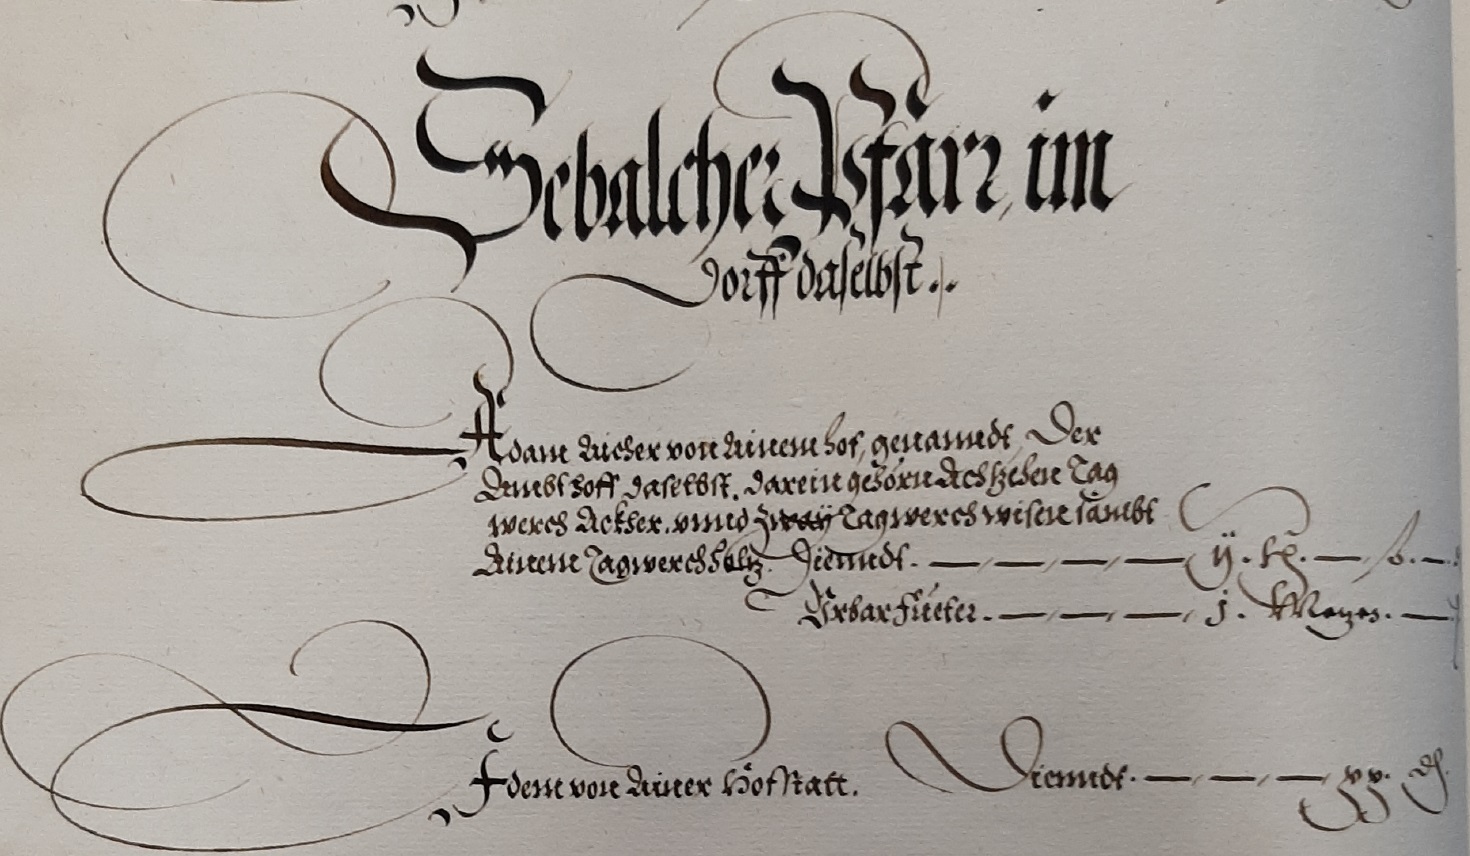 Sebalcher Pfarr im
dorff daselbst.
Adam Aicher von Ainem hof, genanndt Der
Ambthoff daselbst. darein gehörn Achtzehen Tag
werch Ackher. vnnd zway Tagwerch wisen sambt
Ainem Tagwerch holtz. Dienndt. ij. ß.
Vrbarfueter. j. Metzen.
Idem von Ainer Hofstatt. Dienndt. xx. ₰.